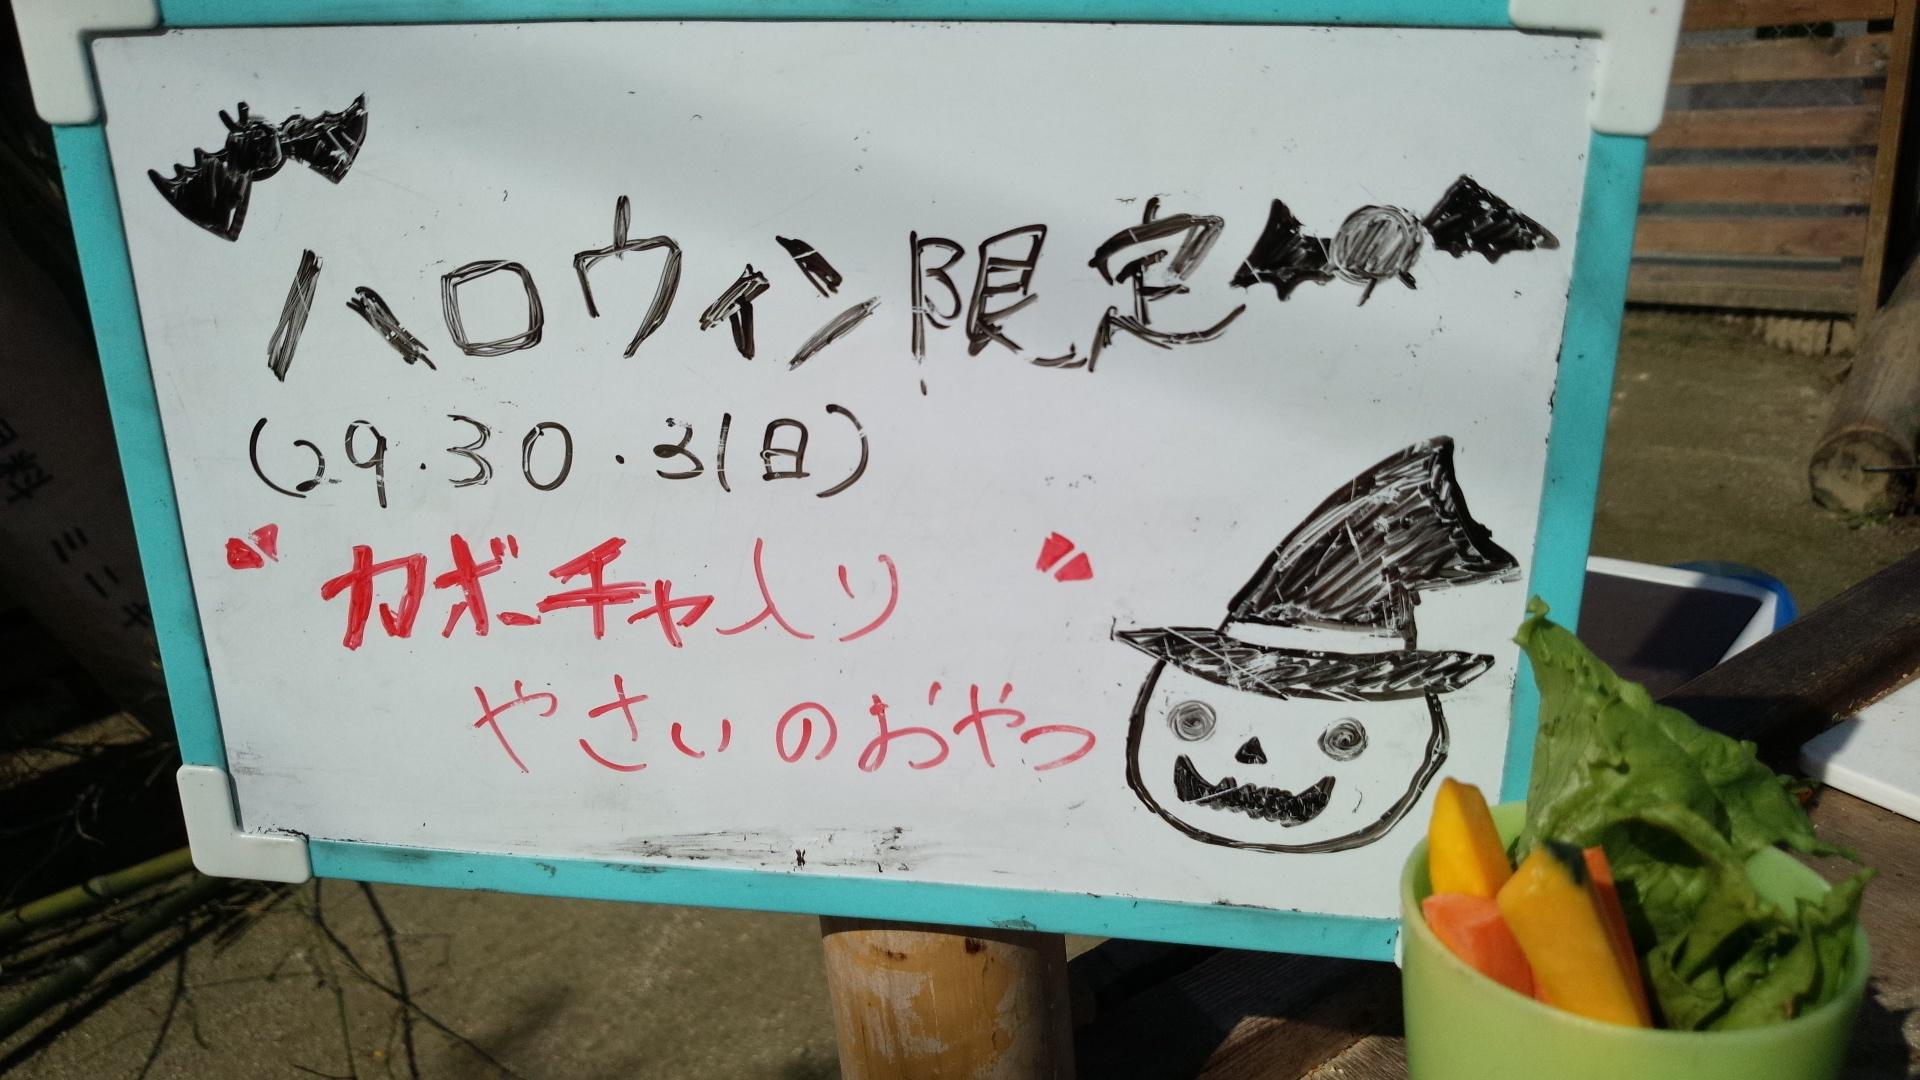 ハロウィン限定
(29.30.31日)
"カボチャ入り"
やさいのおやつ